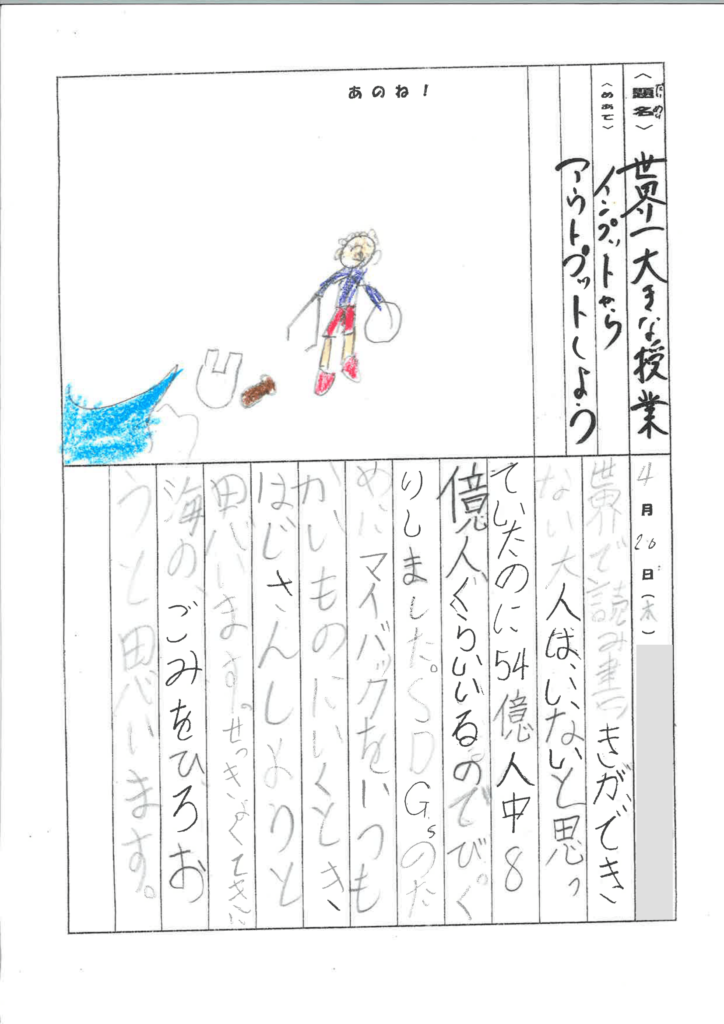 〈題名〉世界一大きな授業
〈めあて〉インプットから
アウトプットしよう
あのね!
4月26日(木)
世界で読み書きができ
ない大人は、いないと思っ
ていたのに54億人中8
億人ぐらいいるのでびっく
りしました。SDGsのた
めにマイバックをいつも
かいものにいくとき、
はじさんしようと
思います。せっきょくてきに
海の、ごみをひろお
うと思います。